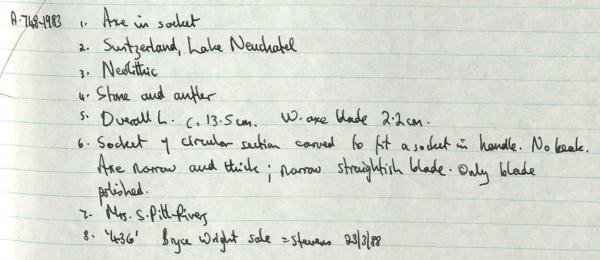 A.748.1983 1. Axe in socket
2. Switzerland, Lake Neuchatel
3. Neolithic
4. Stone and antler
5. Overall L. c. 13.5cm. W. axe blade 2.2cm.
6. Socket of circular section carved to fit a socket in handle. No beak.
Axe narrow and thick; narrow straightish blade. Only blade
polished.
7. Mrs. S. Pitt-Rivers
8. '436' Bryce Wright sale = Stevens 23/3/88